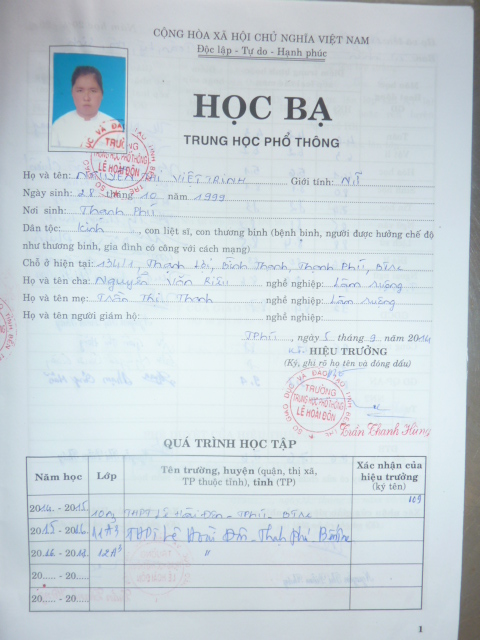 CỘNG HÒA XÃ HỘI CHỦ NGHĨA VIỆT NAM
Độc lập - Tự do - Hạnh phúc
HỌC BẠ
TRUNG HỌC PHỔ THÔNG
Họ và tên: NGUYỄN THỊ VIỆT TRINH Giới tính: Nữ
Ngày sinh: 28 tháng 10 năm 1999
Nơi sinh: Thạnh Phú
Dân tộc: Kinh, con liệt sĩ, con thương binh (bệnh binh, người được hưởng chế độ
như thương binh, gia đình có công với cách mạng)
Chỗ ở hiện tại: 134/1, Thạnh Lợi, Bình Thạnh, Thạnh Phú, BTre
Họ và tên cha: Nguyễn Văn nghề nghiệp: Làm ruộng
Họ và tên mẹ: Trần Thị Thanh nghề nghiệp: Làm ruộng
Họ và tên người giám hộ: nghề nghiệp:
TPhú, ngày 5 tháng 9 năm 2014
HIỆU TRƯỞNG
(Ký, ghi rõ họ tên và đóng dấu)
TRƯỜNG
TRUNG HỌC PHỔ THÔNG
LÊ HOÀI ĐÔN
Trần Thanh Hùng
QUÁ TRÌNH HỌC TẬP
Năm học Lớp Tên trường, huyện (quận, thị xã, TP thuộc tỉnh), tỉnh (TP) Xác nhận của hiệu trưởng (ký tên)
2014 - 2015 THPT Lê Hoài Đôn - TPhú - BTre
2015 - 2016 11A3 THPT Lê Hoài Đôn - Thạnh Phú Bến Tre
2016 - 2017 12A3 "
20..... - 20.....
20..... - 20.....
1